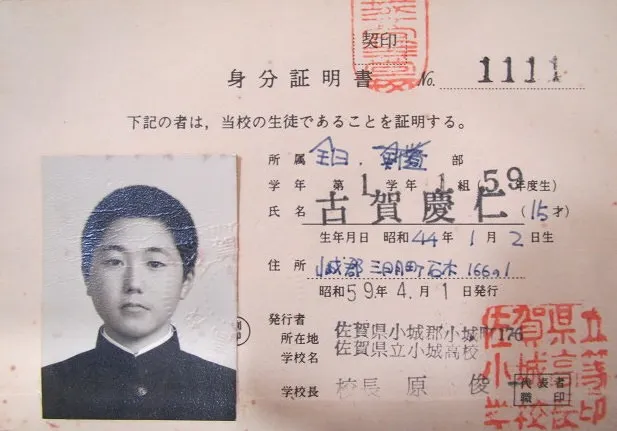 契印
身分証明書 No. 1111
下記の者は，当校の生徒であることを証明する。
所属 全日． 部
学年 第1学年1組(59年度生)
氏名 古賀慶仁 (15才)
生年月日 昭和44年1月2日生
住所 小城郡三日月町石木166の1
昭和59年4月1日発行
発行者
所在地 佐賀県小城郡小城町176
学校名 佐賀県立小城高校
学校長 校長 原 俊一
代表者
職印
佐賀県立
小城高等
学校長印